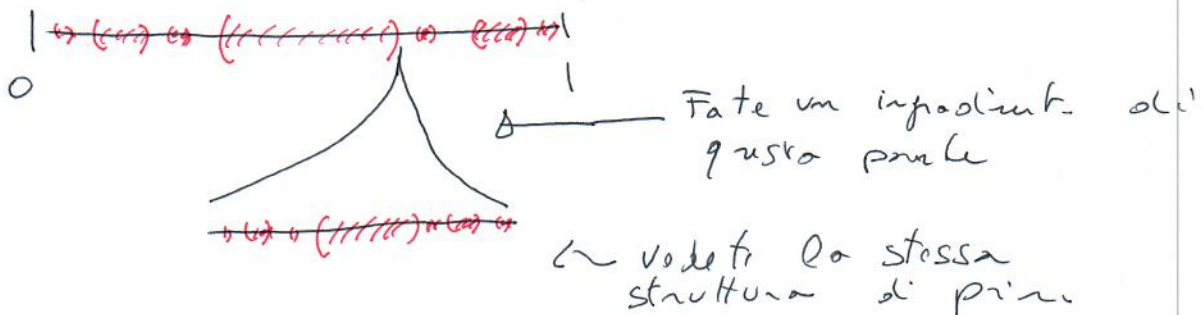 0 1
Fate un ingrandiment. di
questo punto
vedete la stessa
struttura di prima